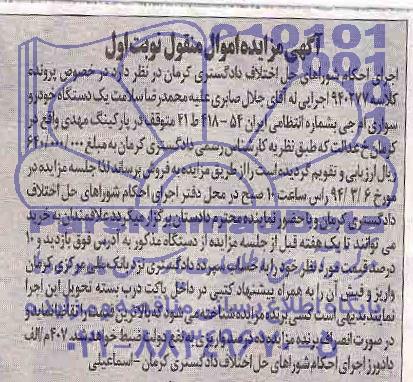 آگهی مزایده اموال منقول نوبت اول
اجرای احکام شوراهای حل اختلاف دادگستری کرمان در نظر دارد در خصوص پرونده
کلاسه ۹۴۰۲۷۷ اجرایی له آقای جلال صابری علیه محمدرضا سلامت یک دستگاه خودرو
سواری دوجی بشماره انتظامی ایران ۵۴ - ۴۱۸ ط ۲۱ متوقف در پارکینگ مهدی واقع در
کرمان خ عدالت که طبق نظریه کارشناس رسمی دادگستری کرمان به مبلغ
ریال ارزیابی و تقویم گردیده است را از طریق مزایده به فروش برساند لذا جلسه مزایده در
مورخ ۹۴/۳/۶ راس ساعت ۱۰ صبح در محل دفتر اجرای احکام شوراهای حل اختلاف
دادگستری کرمان و با حضور نماینده محترم دادستان برگزار میگردد علاقمندان به خرید
می توانند تا یک هفته قبل از جلسه مزایده از دستگاه مذکور به آدرس فوق بازدید و ۱۰
درصد قیمت مورد نظر خود را به حساب سپرده دادگستری نزد بانک ملی مرکزی کرمان
واریز و فیش آن را به همراه پیشنهاد کتبی در داخل پاکت درب بسته تحویل این اجرا
نمایند بدیهی است کسی برنده مزایده شناخته می شود که بالاترین قیمت را تقاضا نماید و
در صورت انصراف برنده مزایده ده درصد واریزی به نفع دولت ضبط خواهد شد. ۲۰۷ م/الف
دادورز اجرای احکام شوراهای حل اختلاف دادگستری کرمان - اسماعیلی
ParsNamadData
۰۲۱-۸۸۳۴۹۶۷۰-۵